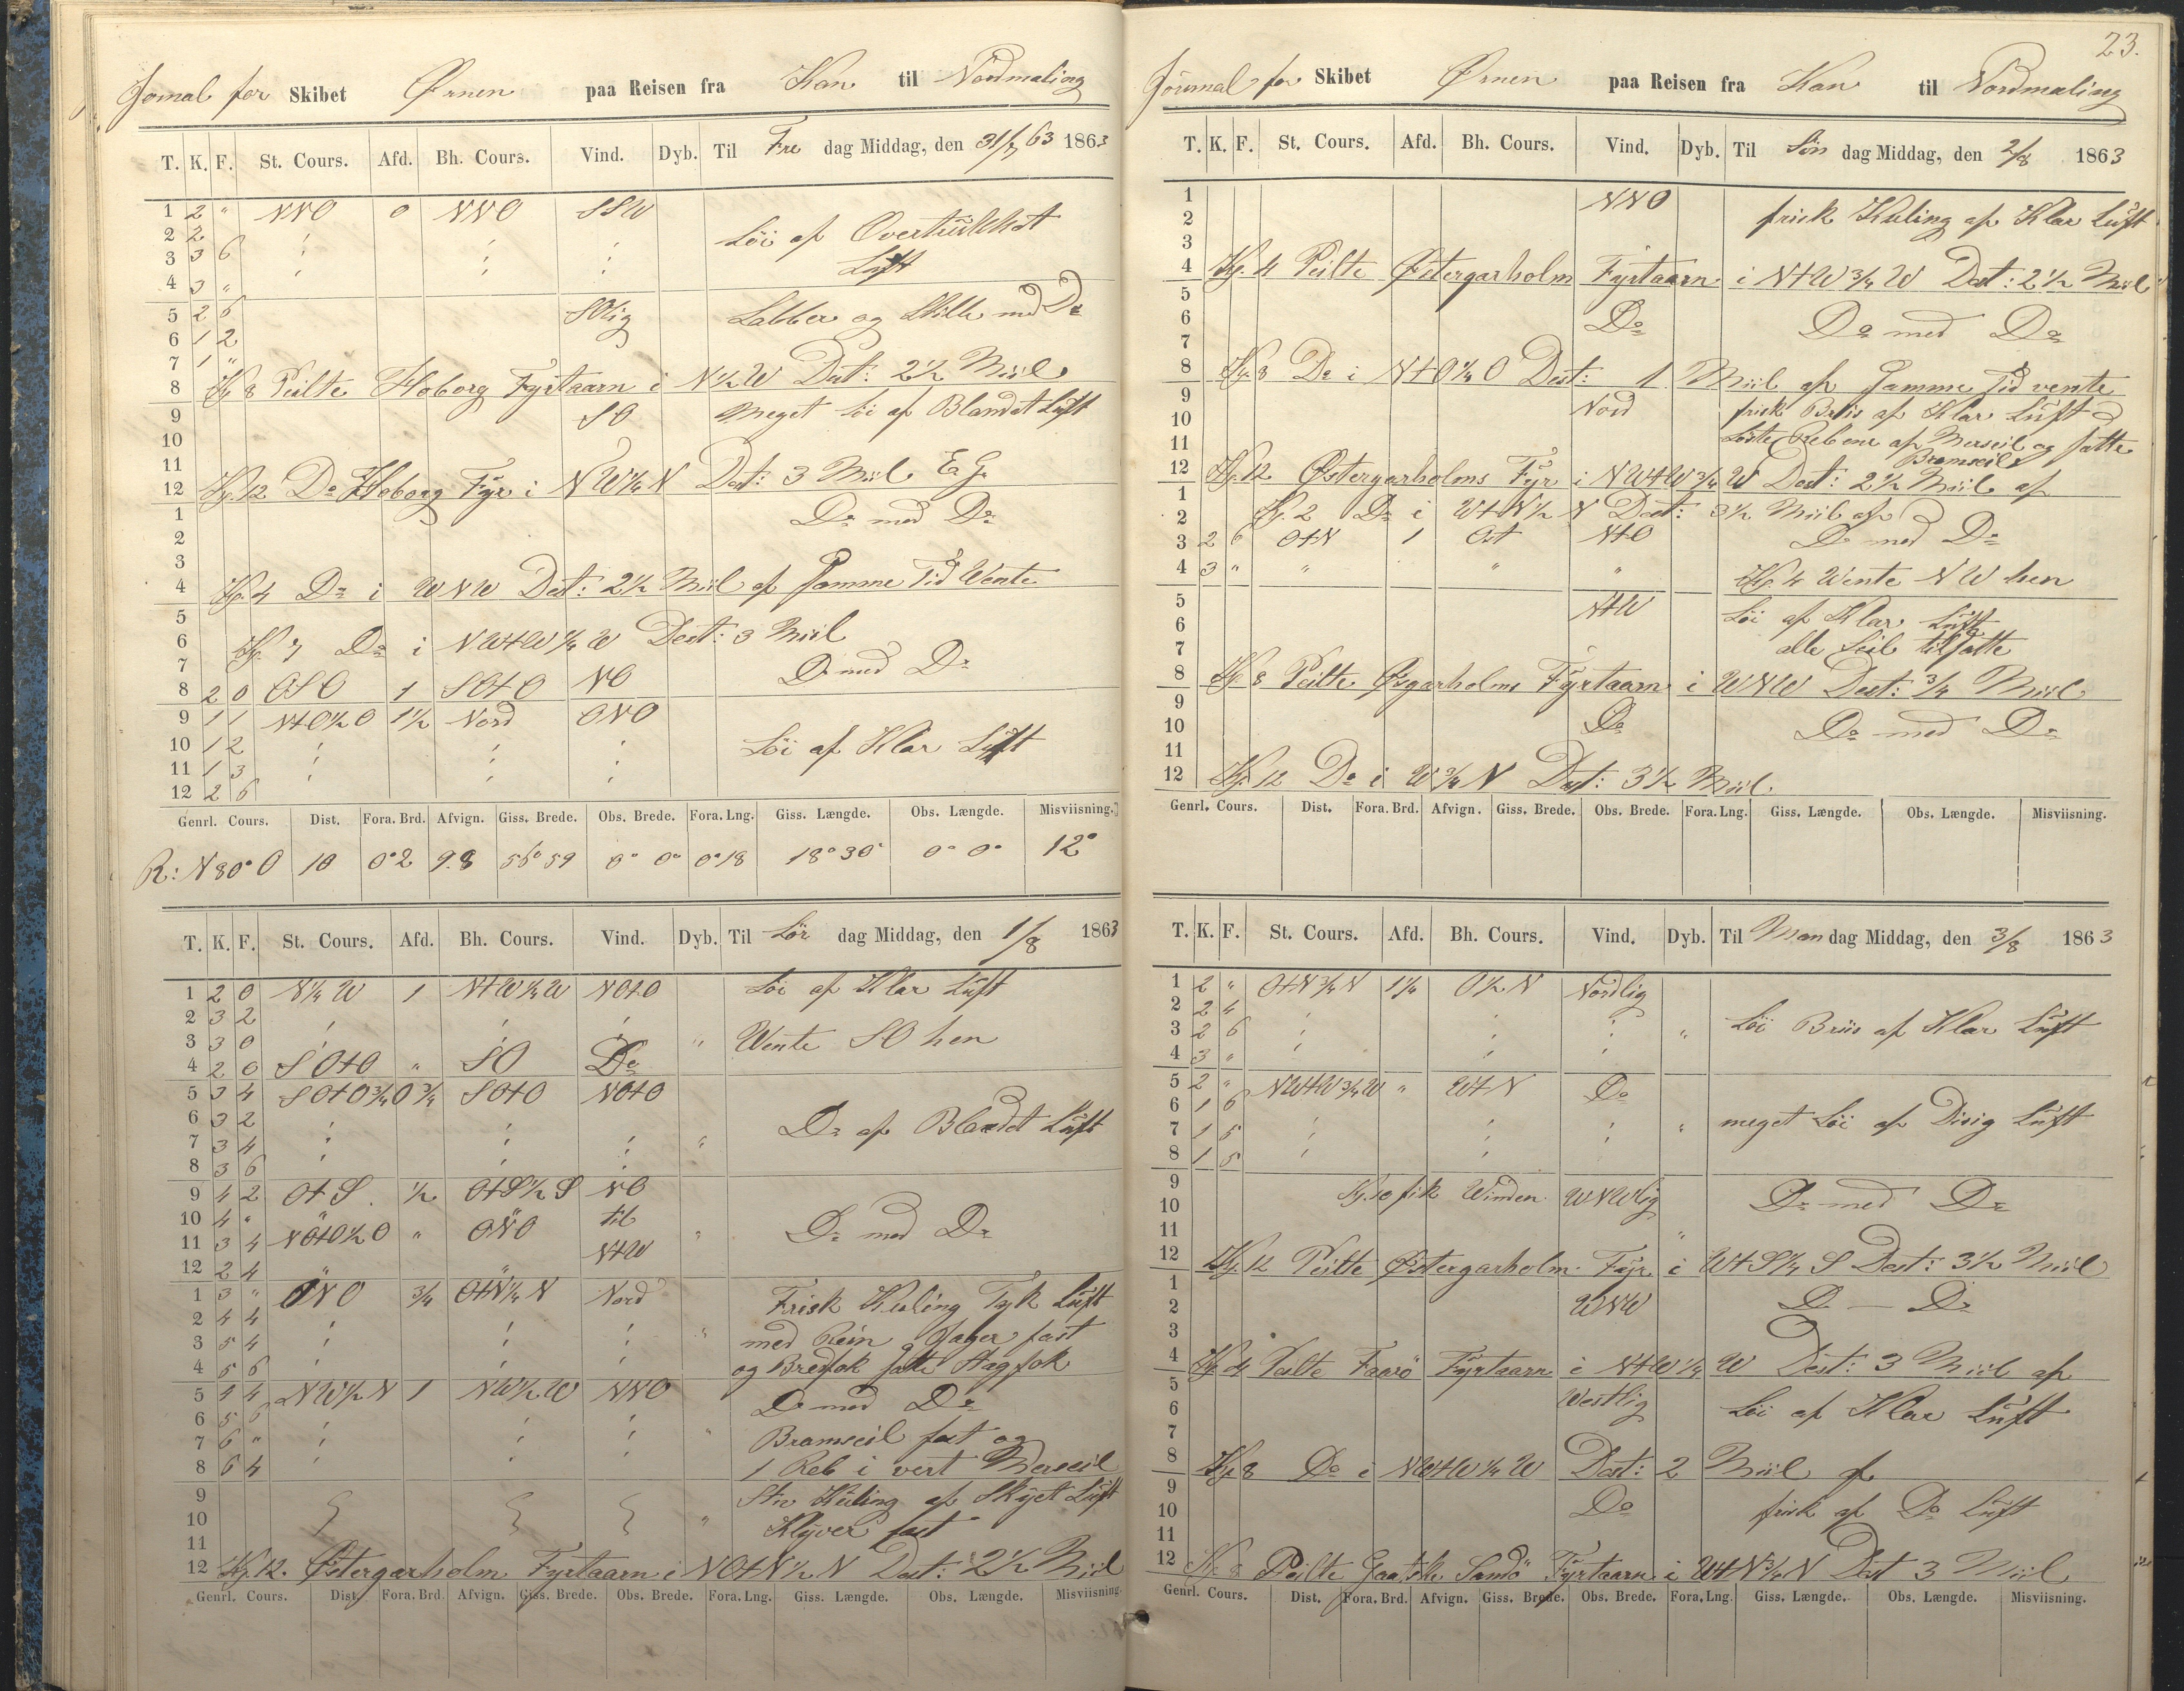 Jornal for Skibet Ørnen paa Reisen fra Kan til Nordmaling
T. K. F. St. Cours. Afd. Bh. Cours. Vind. Dyb. Til Fre dag Middag, den 31/7 63 1863
1 2 " NNO 0 NNO SSW
2 2 Löi af Overtrukket
3 3 6 Luft
4 3 "
5 2 6 SOlig Labber og Stille med Do
6 1 2
7 1 "
8 Kl. 8 Peilte Hoborg Fyrtaarn i N 1/2 W Dest: 2 1/2 Miil
9 SO Meget löi af Blandet Luft
10
11
12 Kl. 12 Do Hoborg Fyr i NW 1/4 N Dest: 3 Miil E.G.
1 Do med Do
2
3
4 Kl. 4 Do i WNW Dest: 2 1/2 Miil af Samme Tid Vente
5
6 Kl. 7 Do i NWtW 1/4 W Dest: 3 Miil
7 Do med Do
8 2 0 OSO 1 SOtO NO
9 1 1 NtO 1/2 O 1 1/2 Nord ONO
10 1 2 Löi af Klar Luft
11 1 3
12 2 6
Genrl. Cours. Dist. Fora. Brd. Afvign. Giss. Brede. Obs. Brede. Fora. Lng. Giss. Længde. Obs. Længde. Misviisning.
R: N 80° O 10 0° 2 9.8 56° 59 0° 0° 0° 18 18° 30' 0° 0° 12°
T. K. F. St. Cours. Afd. Bh. Cours. Vind. Dyb. Til Lör dag Middag, den 1/8 1863
1 2 0 N 1/4 W 1 NtW 1/4 W NOtO Löi af Klar Luft
2 3 2
3 3 0 " Wente SO hen
4 2 0 SOtO " SO Do
5 3 4 SOtO 3/4 O 3/4 SOtO NOtO
6 3 2 Do af Blandet Luft
7 3 4 "
8 3 6
9 4 2 OtS 1/2 OtS 1/2 S NO
10 4 " til Do med Do
11 3 4 NOtO 1/2 O " ONO "
12 2 4 NtW
1 3 " ONO 3/4 OtN 1/4 N Nord Frisk Kuling Tyk Luft
2 4 4
3 5 4 " med Rein Jager fast
4 5 6 og Bredfok satte Stagfok
5 4 4 NW 1/2 N 1 NW 1/2 W NNO Do med Do
6 5 6
7 6 " " Bramseil fast og
8 6 4 1 Reb i vert Merseil
9 Stiv Kuling af Skyet Luft
10 " Klyver fast
11
12 Kl. 12. Østergarholm Fyrtaarn i NOtN 1/2 N Dest: 2 1/2 Miil
Genrl. Cours. Dist. Fora. Brd. Afvign. Giss. Brede. Obs. Brede. Fora. Lng. Giss. Længde. Obs. Længde. Misviisning.
23.
Journal for Skibet Ørnen paa Reisen fra Kan til Nordmaling
T. K. F. St. Cours. Afd. Bh. Cours. Vind. Dyb. Til Sön dag Middag, den 2/8 1863
1 NNO frisk Kuling af Klar Luft
2
3
4 Kl. 4 Peilte Østergarholm Fyrtaarn i NtW 3/4 W Dest: 2 1/2 Miil
5
6 Do Do med Do
7
8 Kl. 8 Do i NtO 1/4 O Dest: 1 Miil af Samme Tid vente
9 Nord frisk Briis af Klar Luft
10 Löste Rebene af Merseil og satte
11 Bramseil
12 Kl. 12 Østergarholms Fyr i NWtW 3/4 W Dest: 2 1/2 Miil af
1 Kl. 2 Do i WtN 1/2 N Dest: 3 1/2 Miil af
2
3 2 6 OtN 1 Ost NtO Do med Do
4 3 " " " " Kl. 4 Wente NW hen
5 NtW Löi af Klar Luft
6 alle Seil tilsatte
7
8 Kl. 8 Peilte Øsgarholms Fyrtaarn i WNW Dest: 3/4 Miil
9
10 Do Do med Do
11
12 Kl. 12 Do i W 3/4 N Dest: 3 1/2 Miil
Genrl. Cours. Dist. Fora. Brd. Afvign. Giss. Brede. Obs. Brede. Fora. Lng. Giss. Længde. Obs. Længde. Misviisning.
T. K. F. St. Cours. Afd. Bh. Cours. Vind. Dyb. Til Man dag Middag, den 3/8 1863
1 2 " OtN 3/4 N 1 1/4 O 1/2 N Nordlig
2 2 4
3 2 6 " Löi Briis af Klar Luft
4 3 "
5 2 " NWtW 3/4 W " WtN Do
6 1 6
7 1 5 " meget Löi af Disig Luft
8 1 5
9 Kl. 10 fik Winden WNWlig Do med Do
10
11 "
12 Kl. 12 Peilte Østergarholm Fyr i WtS 1/4 S Dest: 3 1/2 Miil
1
2 WNW Do — Do
3
4 Kl. 4 Peilte Faarö Fyrtaarn i NtW 1/4 W Dest: 3 Miil af
5 Westlig
6 Löi af Klar Luft
7
8 Kl. 8 Do i NWtW 1/4 W Dest: 2 Miil af
9
10 Do frisk af Do Luft
11
12 Kl. 8 Peilte Gaatske Sandö Fyrtaarn i WtN 3/4 N Dest 3 Miil
Genrl. Cours. Dist. Fora. Brd. Afvign. Giss. Brede. Obs. Brede. Fora. Lng. Giss. Længde. Obs. Længde. Misviisning.